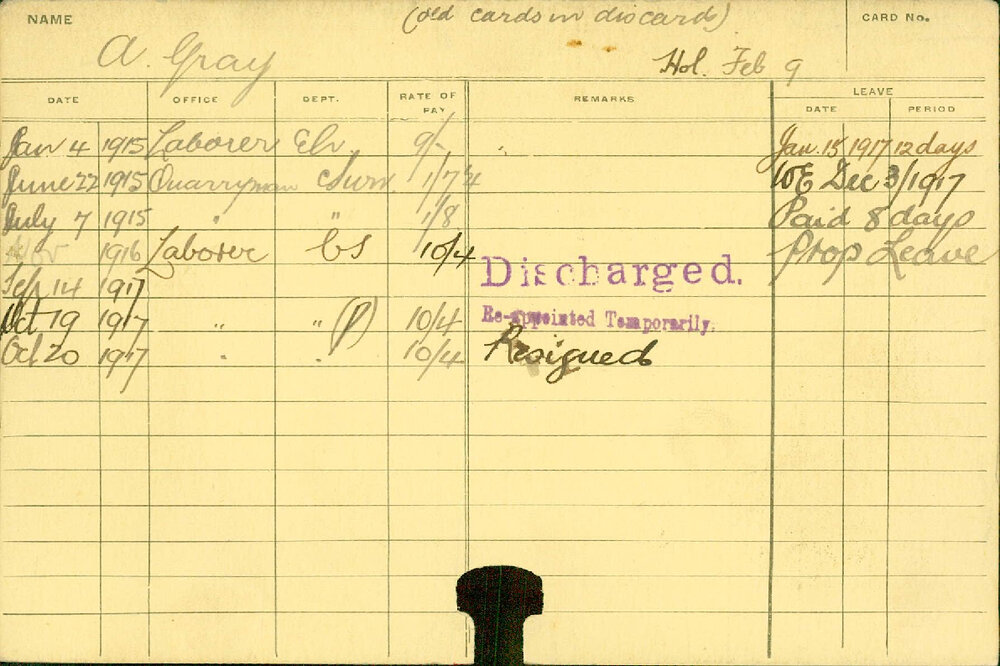 NAME (old cards in discards) CARD No.
A. Gray Hol. Feb 9
DATE OFFICE DEPT. RATE OF PAY REMARKS LEAVE
DATE PERIOD
Jan 4 1915 Laborer 9/- Jan. 15 1917 12 days
June 22 1915 Quarryman 1/7 WE Dec 3/1917
July 7 1915 " " 1/8 Paid 8 days
Nov 1916 Laborer CS 10/4 Prop Leave
Sep 14 1917 Discharged.
Oct 19 1917 " " (P) 10/4 Re-appointed Temporarily.
Oct 20 1917 " " 10/4 Resigned